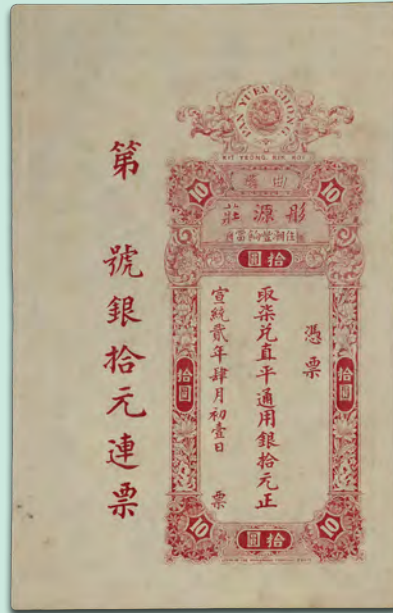 YUEN CHONG
KIT YEONG, KIN BOY
10
10
彤源莊
拾圓
憑票
取柒兌直平通用銀拾元正
宣統貳年肆月初壹日
票
拾圓
拾圓
10
拾圓
10
第 號銀拾元連票